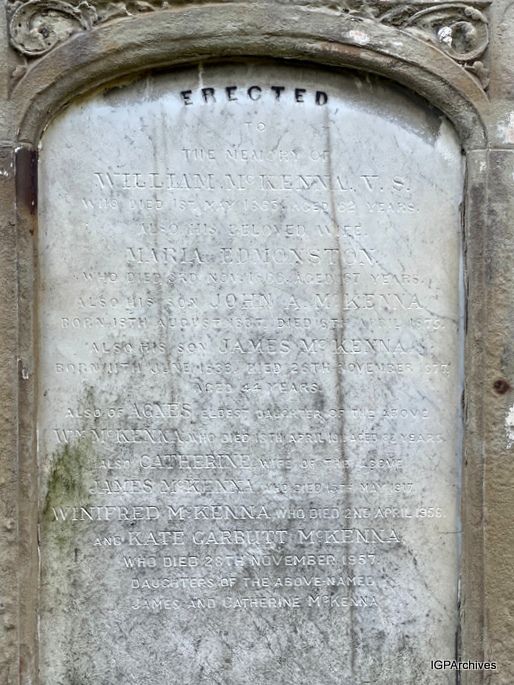 ERECTED
TO
THE MEMORY OF
WILLIAM McKENNA, V. S.
WHO DIED 1ST MAY AGED YEARS.
ALSO HIS BELOVED WIFE,
MARIA EDMONSTON.
WHO DIED 3RD NOV. AGED YEARS.
ALSO HIS SON JOHN A. McKENNA
BORN 15TH AUGUST DIED
ALSO HIS SON JAMES McKENNA
BORN 11TH JUNE 1833. DIED 28TH NOVEMBER 1877
AGED 44 YEARS.
ALSO OF AGNES ELDEST DAUGHTER OF THE ABOVE
WM McKENNA, WHO DIED APRIL AGED YEARS.
ALSO CATHERINE, WIFE OF THE ABOVE
JAMES McKENNA, WHO DIED MAY
WINIFRED McKENNA, WHO DIED 2ND APRIL 1956.
AND KATE GARBUTT McKENNA
WHO DIED 28TH NOVEMBER 1957
DAUGHTERS OF THE ABOVE-NAMED
JAMES AND CATHERINE McKENNA
IGPArchives